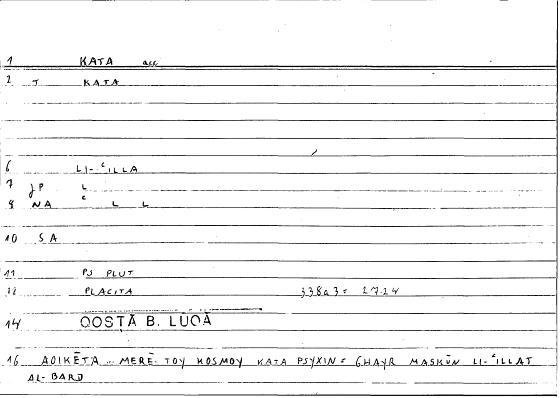 1 KATA acc
2 T KATA
6 LI-ʿILLA
7 JP L
8 NA ʿ L L
10 SA
11 PS PLUT
12 PLACITA 338a3 = 27.14
14 QOSṬĀ B. LŪQĀ
16 AOIKĒTA .. MERĒ TOY KOSMOY KATA PSYXIN = GHAYR MASKŪN LI-ʿILLAT
AL-BARD